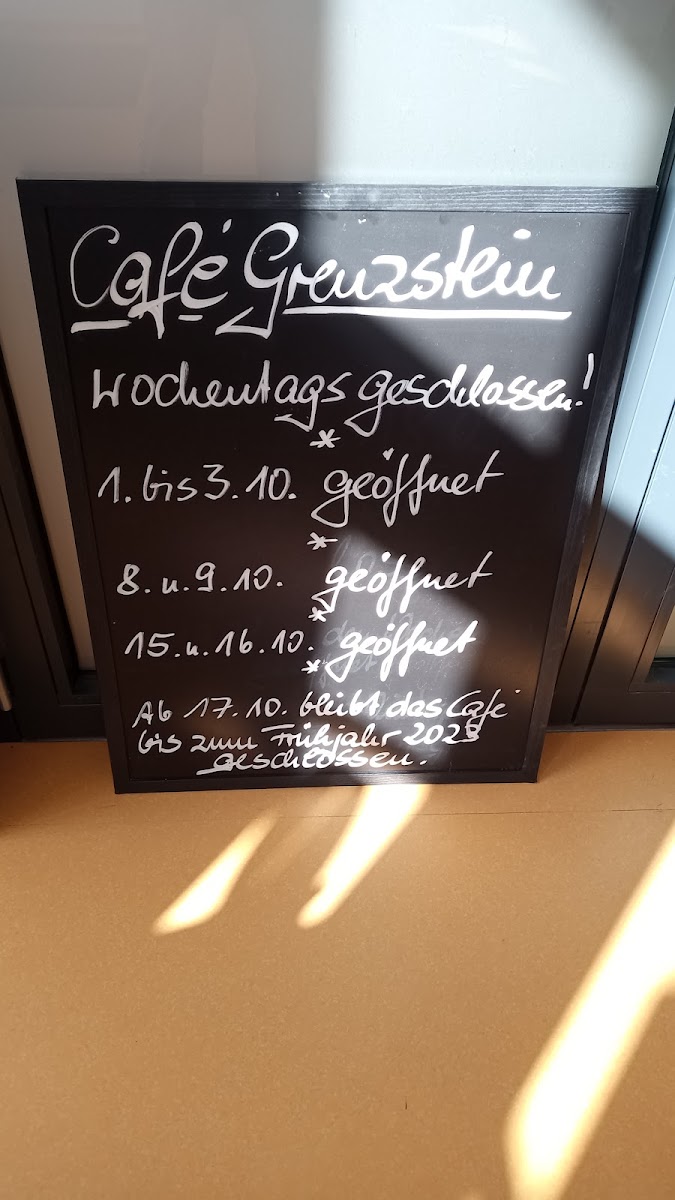 Café Grenzstein
Wochentags geschlossen!
*
1. bis 3.10. geöffnet
*
8. u. 9.10. geöffnet
*
15. u. 16.10. geöffnet
*
Ab 17.10. bleibt das Café
bis zum Frühjahr 2023
geschlossen.